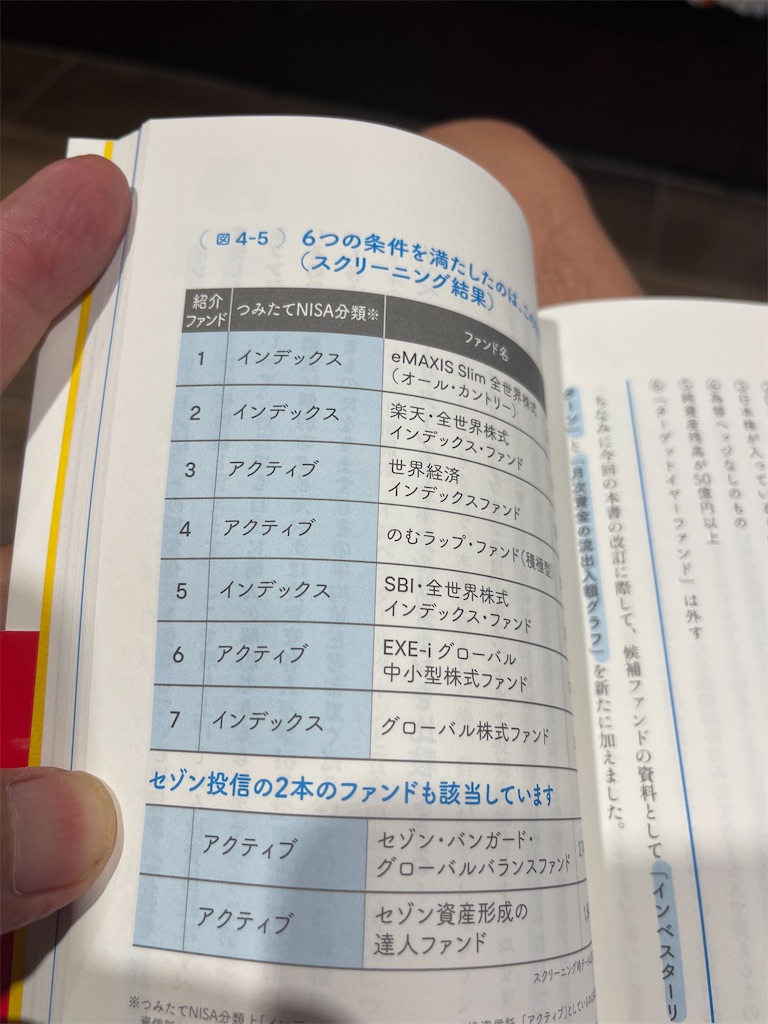 (図4-5) 6つの条件を満たしたのは、この
(スクリーニング結果)
紹介
ファンド
つみたてNISA分類※
ファンド名
1
インデックス
eMAXIS Slim 全世界株式
(オール・カントリー)
2
インデックス
楽天・全世界株式
インデックス・ファンド
3
アクティブ
世界経済
インデックスファンド
4
アクティブ
のむラップ・ファンド(積極型)
5
インデックス
SBI・全世界株式
インデックス・ファンド
6
アクティブ
EXE-i グローバル
中小型株式ファンド
7
インデックス
グローバル株式ファンド
セゾン投信の2本のファンドも該当しています
アクティブ
セゾン・バンガード・
グローバルバランスファンド
アクティブ
セゾン資産形成の
達人ファンド
スクリーニング時
※つみたてNISA分類上「イン
「アクティブ」としている
③日本株が入っている
④為替ヘッジなしのもの
⑤純資産残高が50億円以上
⑥「ターゲットイヤーファンド」は外す
ちなみに今回の本書の改訂に際して、候補ファンドの資料として「インベスターリ
ターン」と「月次資金の流出入額グラフ」を新たに加えました。